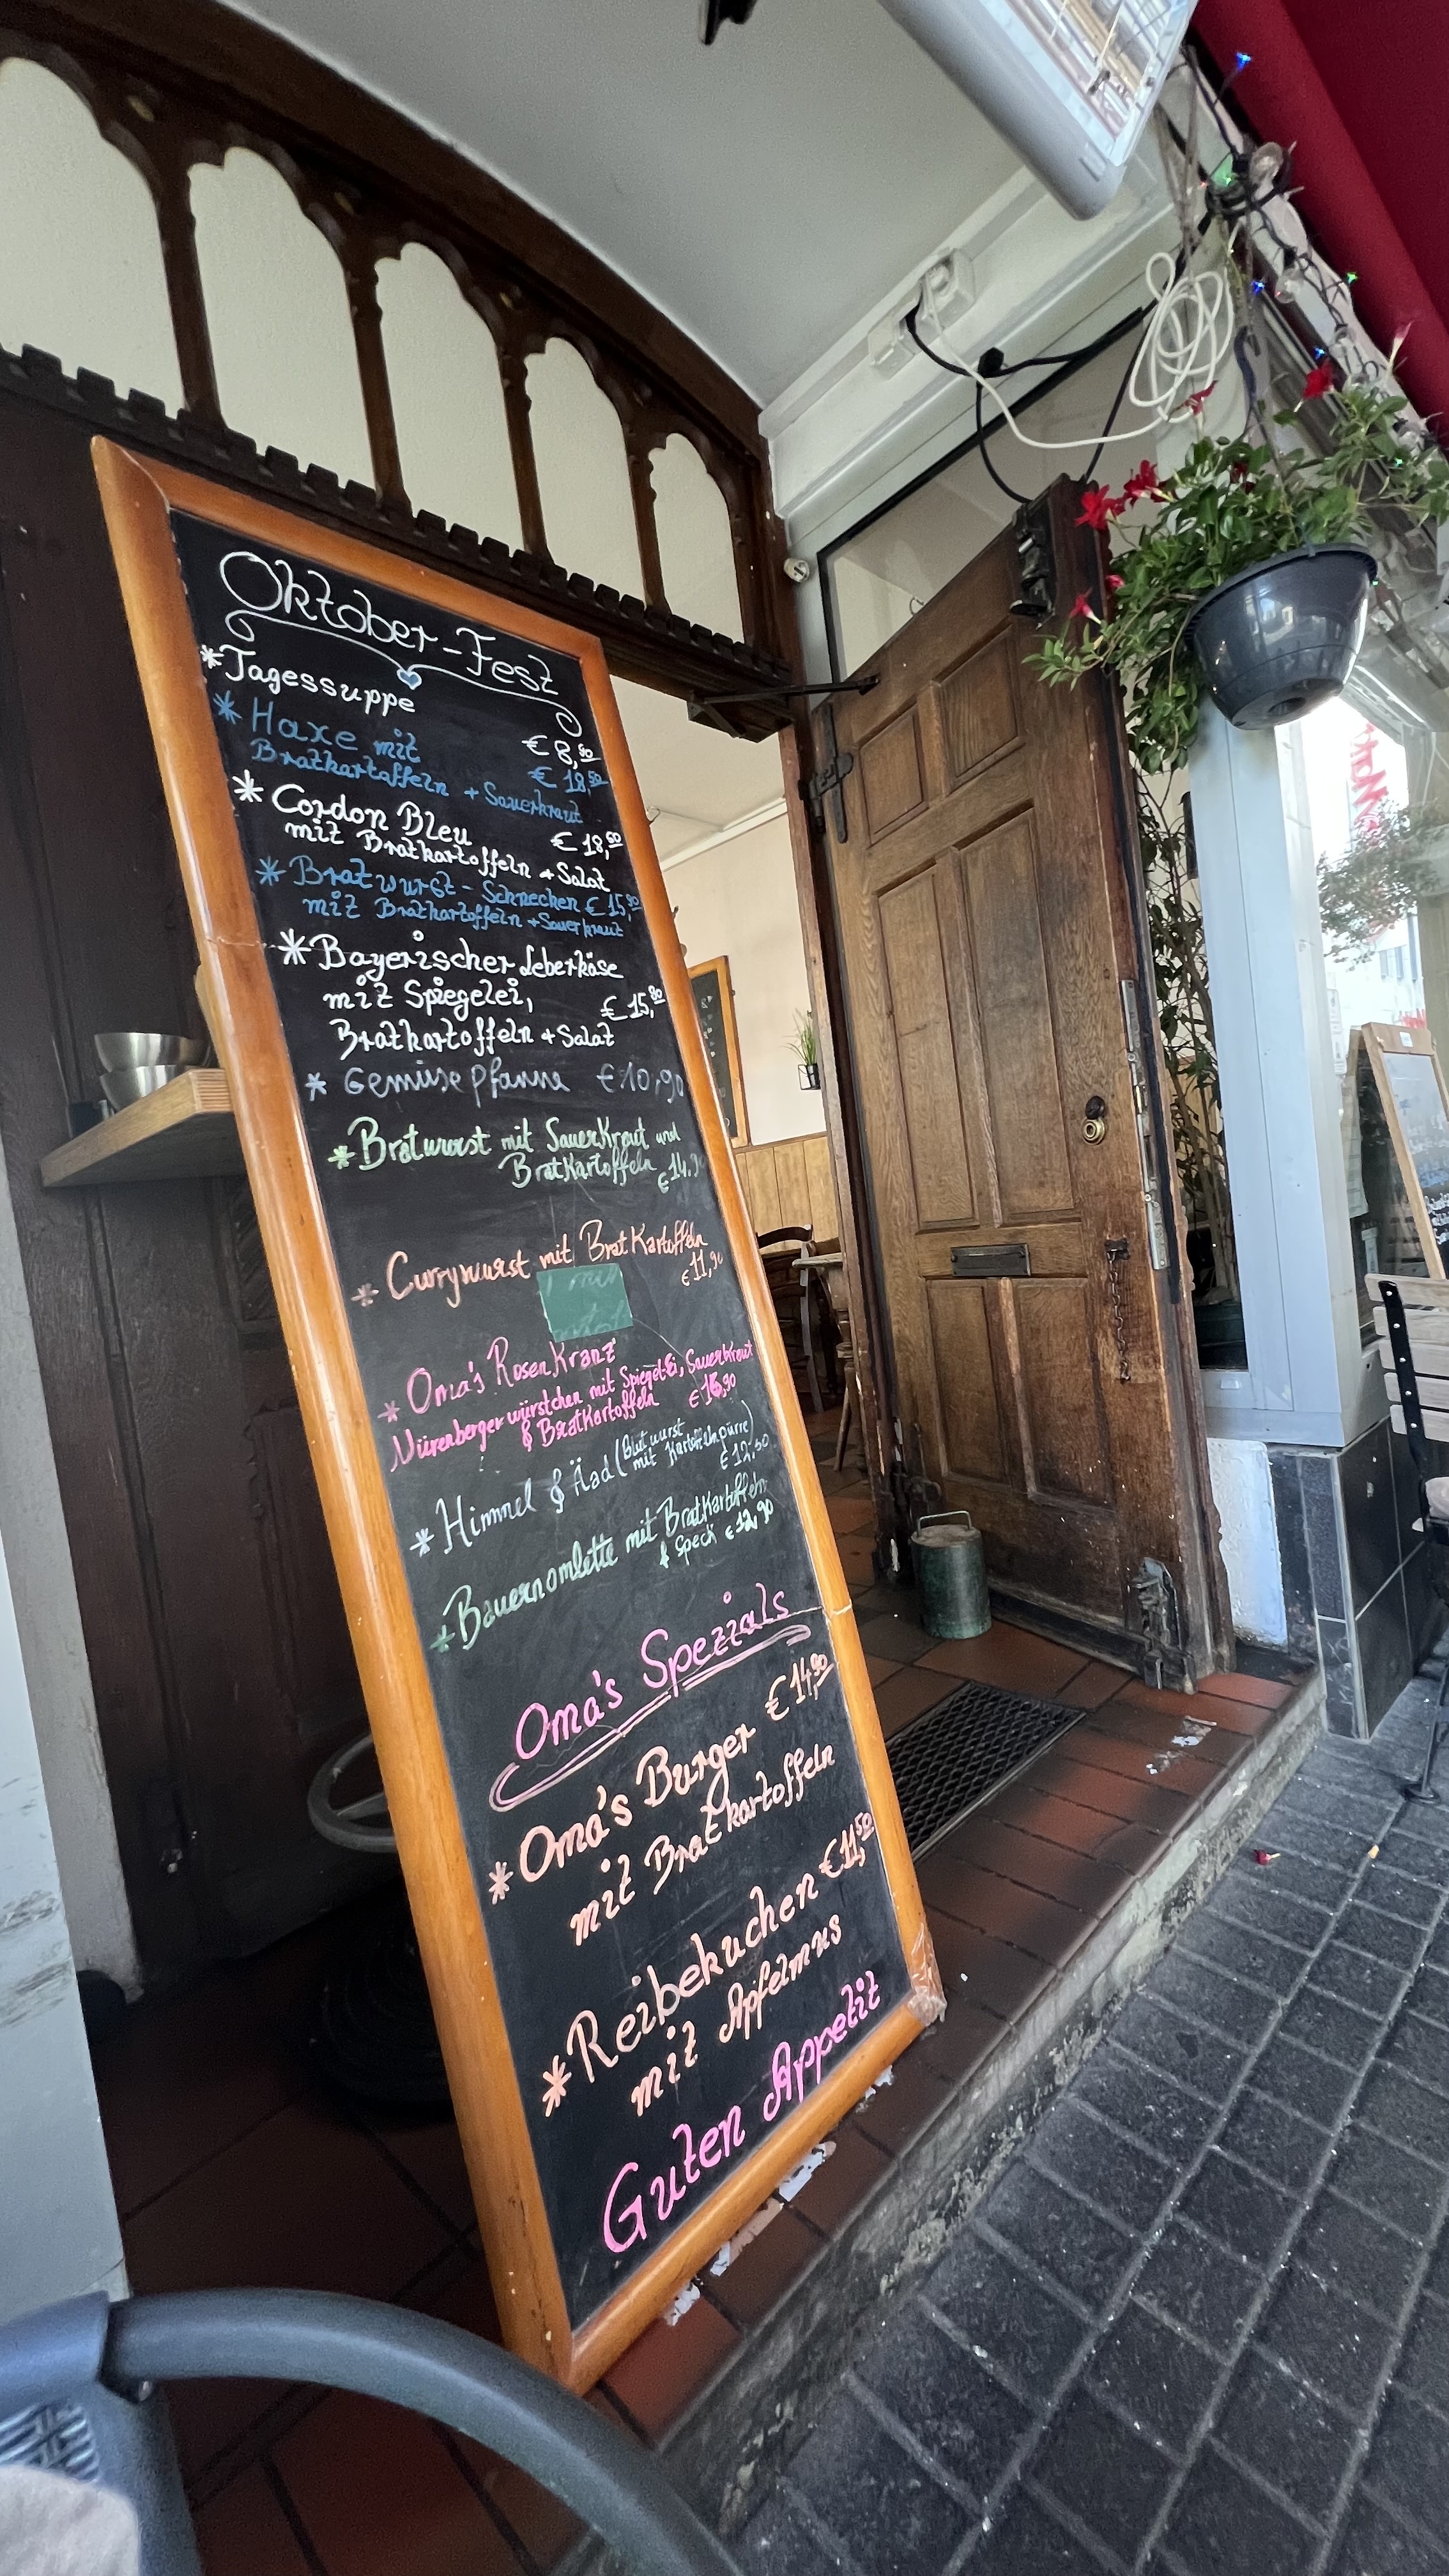 Oktober-Fest
*Tagessuppe € 8,90
*Haxe mit € 18,50
Bratkartaffeln + Sauerkraut
*Cordon Bleu € 18,50
mit Bratkartoffeln + Salat
*Bratwurst-Schnecken € 15,90
mit Bratkartoffeln + Sauerkraut
*Bayerischer Leberkäse
mit Spiegelei, € 15,80
Bratkartoffeln + Salat
* Gemüse pfanne € 10,90
*Bratwurst mit SauerKraut und
BratKartoffeln € 14,90
* Currywurst mit BratKartoffeln
€ 11,90
* Oma's RosenKranz
Nürenberger würstchen mit Spiegel-Ei, SauerKraut
& BratKartoffeln € 16,90
* Himmel & Äad (Blutwurst
mit Kartoffelnpürre)
€ 12,50
*Bauernomlette mit BratKartoffeln
& Speck € 12,90
Oma's Spezials
*Oma's Burger € 14,90
mit Bratkartoffeln
*Reibekuchen € 11,50
mit Apfelmus
Guten Appetit